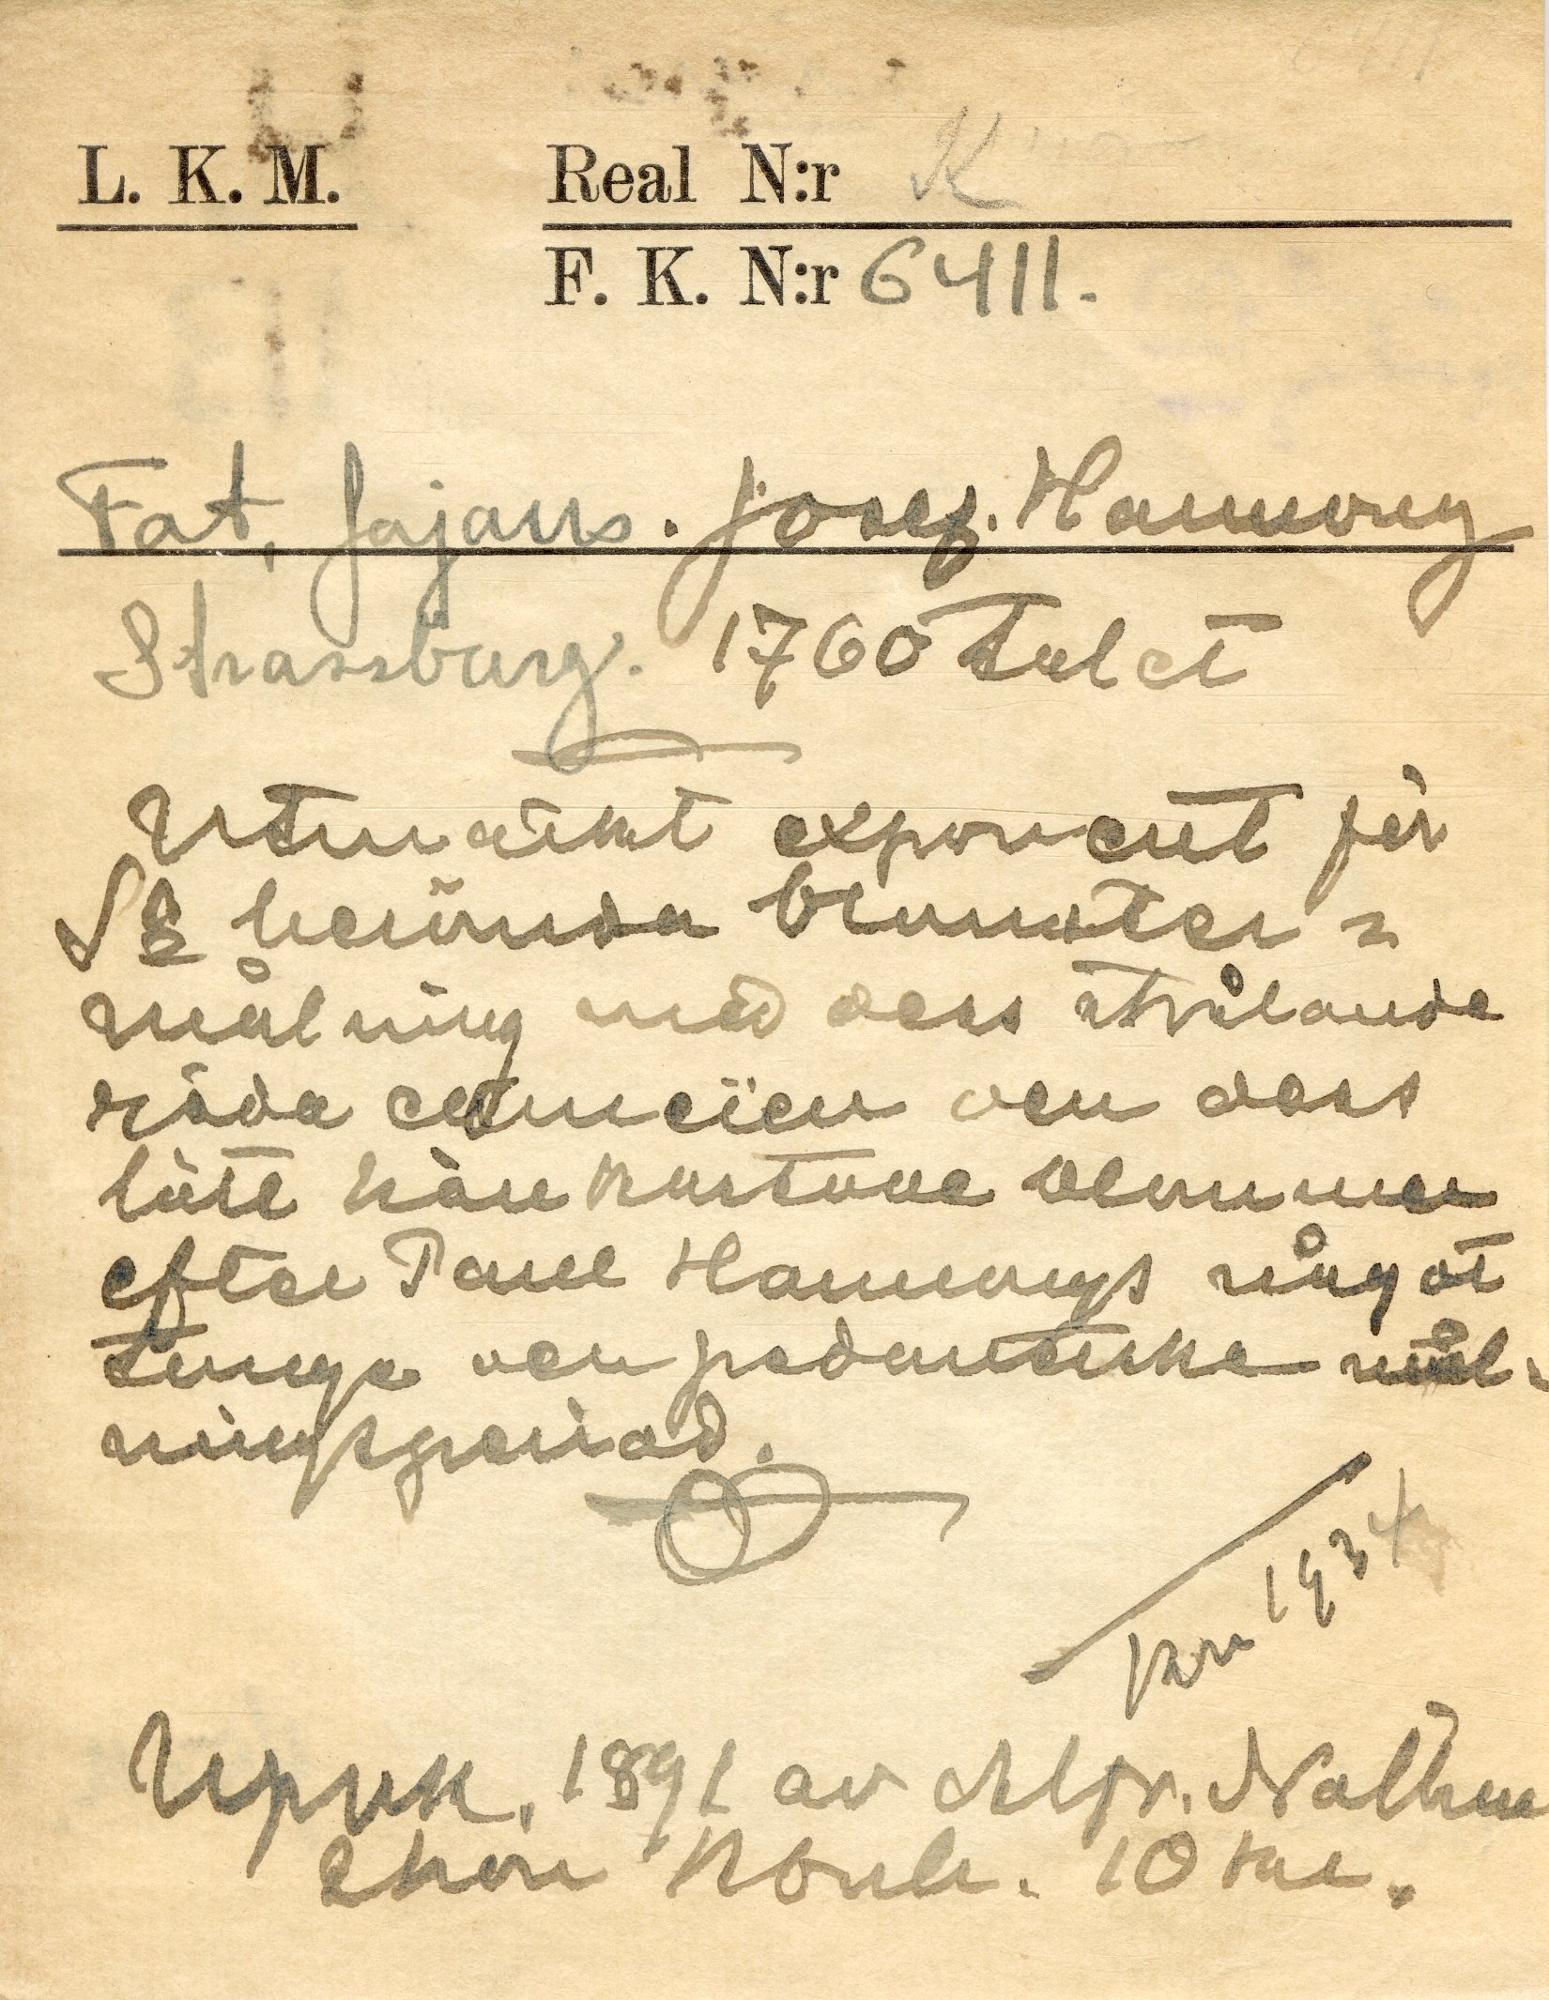 L. K. M. Real N:r K
F. K. N:r 6411.
Fat, fajans. Josef. Hannong
Strassburg. 1760 talet
Utmärkt exponent för
s k berömda blomster=
målning med dess strålande
röda och dess
lätt blommor
efter Paul Hannongs något
tunga och pedantiska mål-
ningsperiod.
1934
Uppk. 1891 av Alfr. Nathan
Khvn 10 kr.